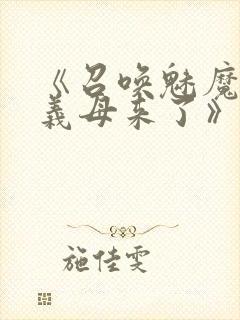 《召唤魅魔
義母来了》
施佳雯